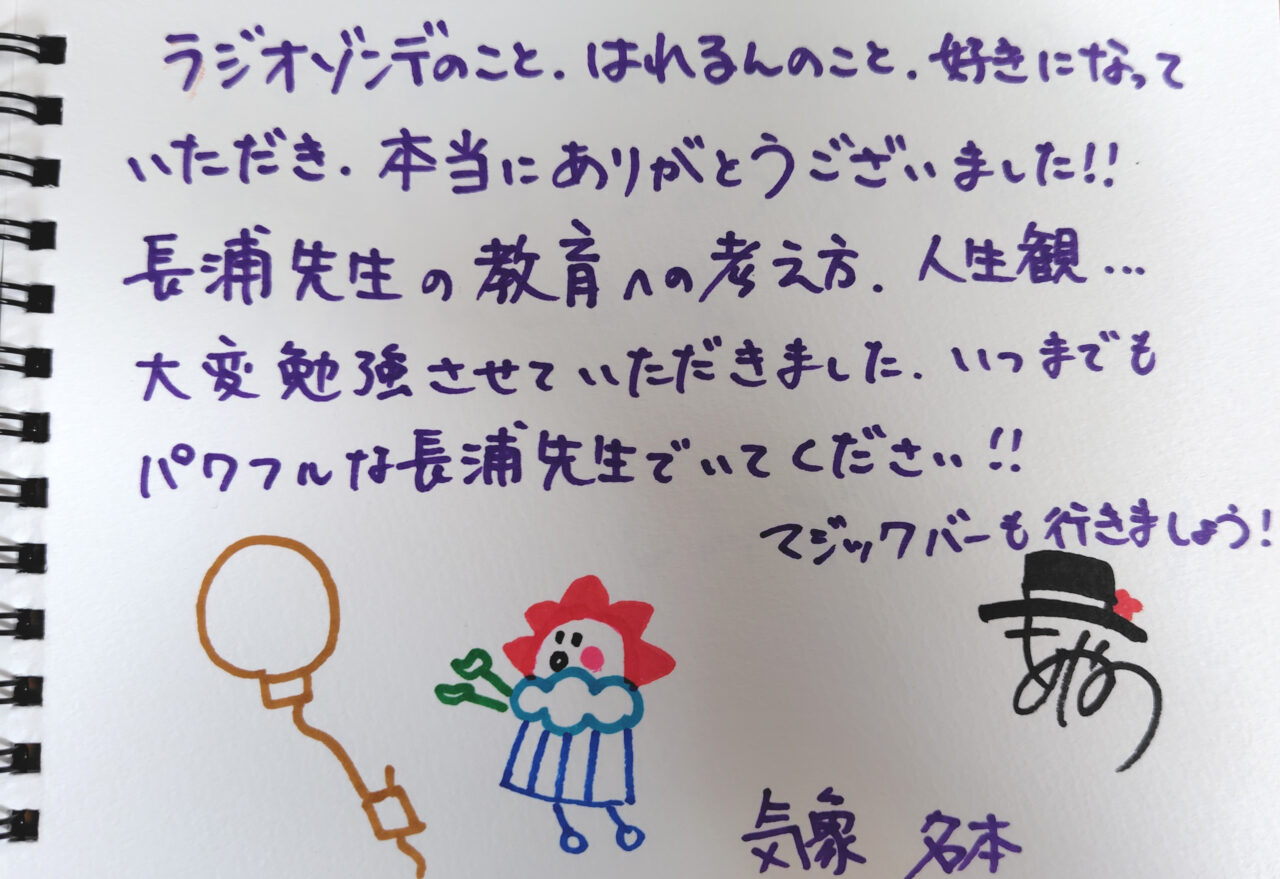 ラジオゾンデのこと．はれるんのこと．好きになって
いただき．本当にありがとうございました!!
長浦先生の教育への考え方．人生観...
大変勉強させていただきました．いつまでも
パワフルな長浦先生でいてください!!
マジックバーも行きましょう!
気象 名本